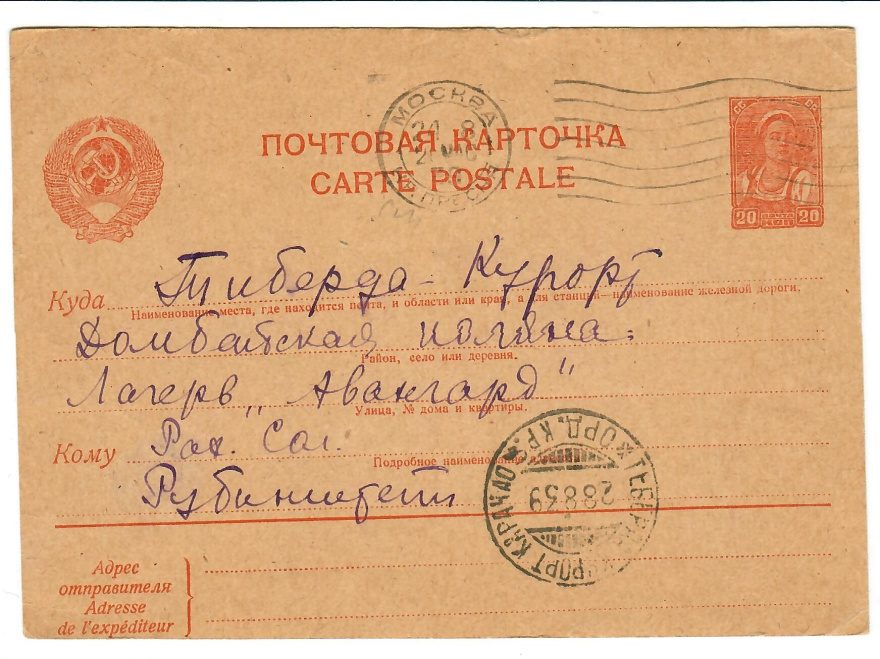 МОСКВА
ПОЧТОВАЯ КАРТОЧКА
CARTE POSTALE
20 ПОЧТА 20
Куда Тиберда-Курорт
Наименование места, где находится почта, и области или края, а для станций—наименование железной дороги.
Домбайская поляна.
Район, село или деревня.
Лагерь „Авангард"
Улица, № дома и квартиры.
Кому
Подробное наименование
Рубинштейн
КУРОРТ КАРАЧАО ОРД. КР.
28 8 39
Адрес
отправителя
Adresse
de l'expéditeur